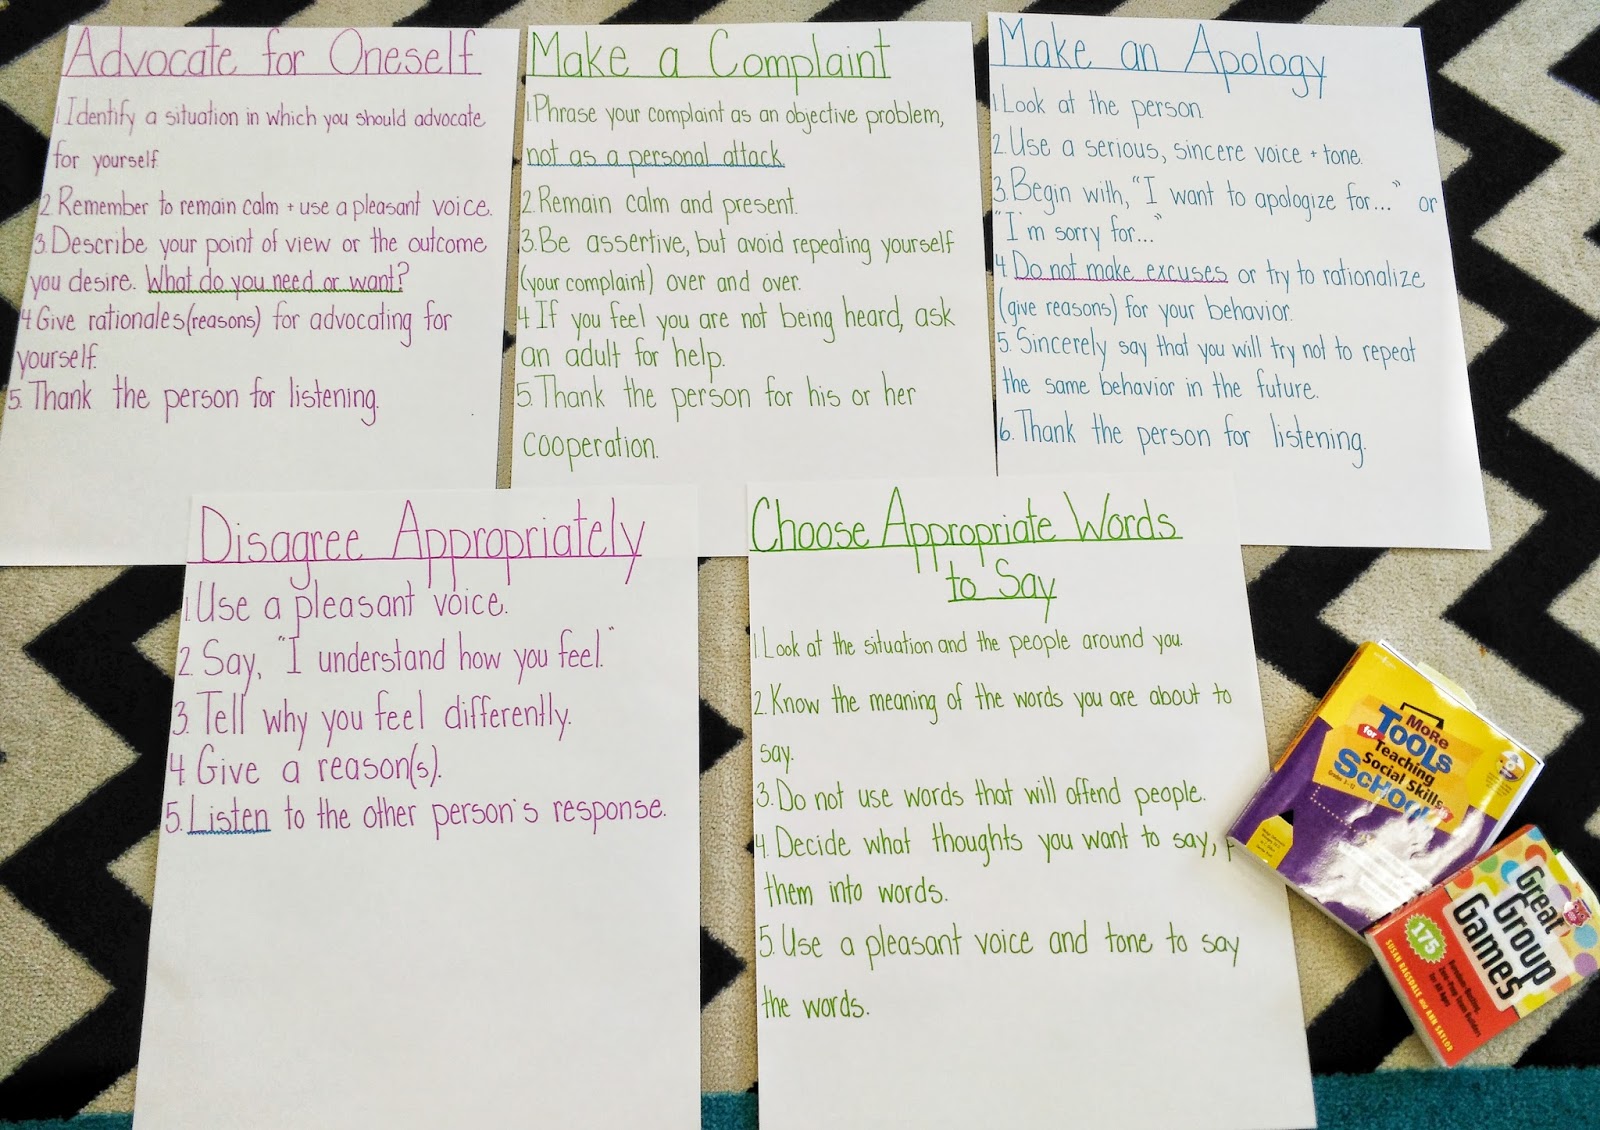 Advocate for Oneself
1. Identify a situation in which you should advocate
for yourself.
2. Remember to remain calm + use a pleasant voice.
3. Describe your point of view or the outcome
you desire. What do you need or want?
4. Give rationales (reasons) for advocating for
yourself.
5. Thank the person for listening.
Make a Complaint
1. Phrase your complaint as an objective problem,
not as a personal attack.
2. Remain calm and present.
3. Be assertive, but avoid repeating yourself
(your complaint) over and over.
4. If you feel you are not being heard, ask
an adult for help.
5. Thank the person for his or her
cooperation.
Make an Apology
1. Look at the person.
2. Use a serious, sincere voice + tone.
3. Begin with, "I want to apologize for..." or
"I'm sorry for..."
4. Do not make excuses or try to rationalize
(give reasons) for your behavior.
5. Sincerely say that you will try not to repeat
the same behavior in the future.
6. Thank the person for listening.
Disagree Appropriately
1. Use a pleasant voice.
2. Say, "I understand how you feel."
3. Tell why you feel differently.
4. Give a reason(s).
5. Listen to the other person's response.
Choose Appropriate Words
to Say
1. Look at the situation and the people around you.
2. Know the meaning of the words you are about to
say.
3. Do not use words that will offend people.
4. Decide what thoughts you want to say,
them into words.
5. Use a pleasant voice and tone to say
the words.
MoRe
TOOLS
for Teaching
Social Skills
SCHOOL
Grades 3-12
Great
Group
Games
175
Boredom-Busting,
Zero-Prep Team Builders
for All Ages
SUSAN RAGSDALE and ANN SAYLOR